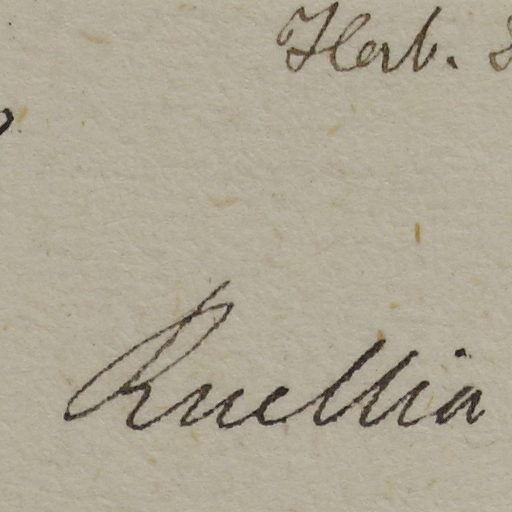 Herb.
Ruellia